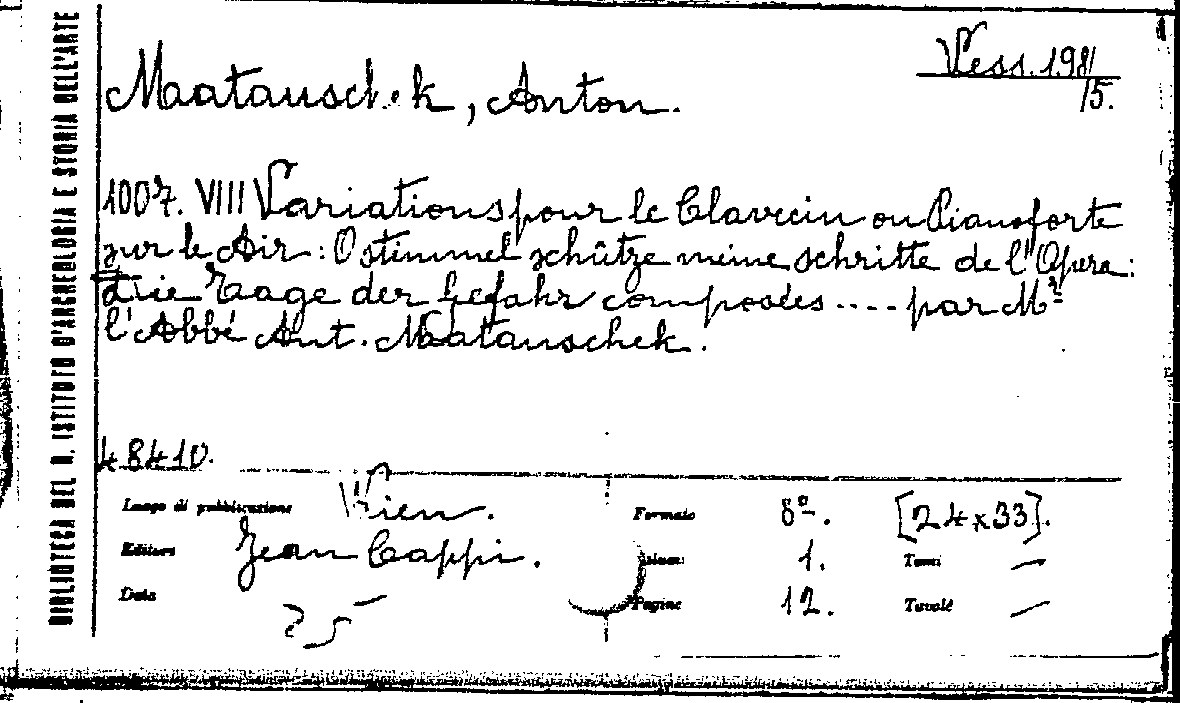 BIBLIOTECA DEL R. ISTITUTO D'ARCHEOLOGIA E STORIA DELL'ARTE
Vess. 198/
15.
Maatauschek, Anton.
1007. VIII Variations pour le Clavecin ou Pianoforte
sur le Air: O stimmel schütze meine schritte de l'Opera:
Die Tage der Gefahr composées .... par Mr
l'Abbé Ant. Maatauschek.
48410.
Luogo di pubblicazione Wien. Formato 8º. [24x33].
Editore Jean Cappi. 1. Tomi —
Data Pagine 12. Tavole —
25